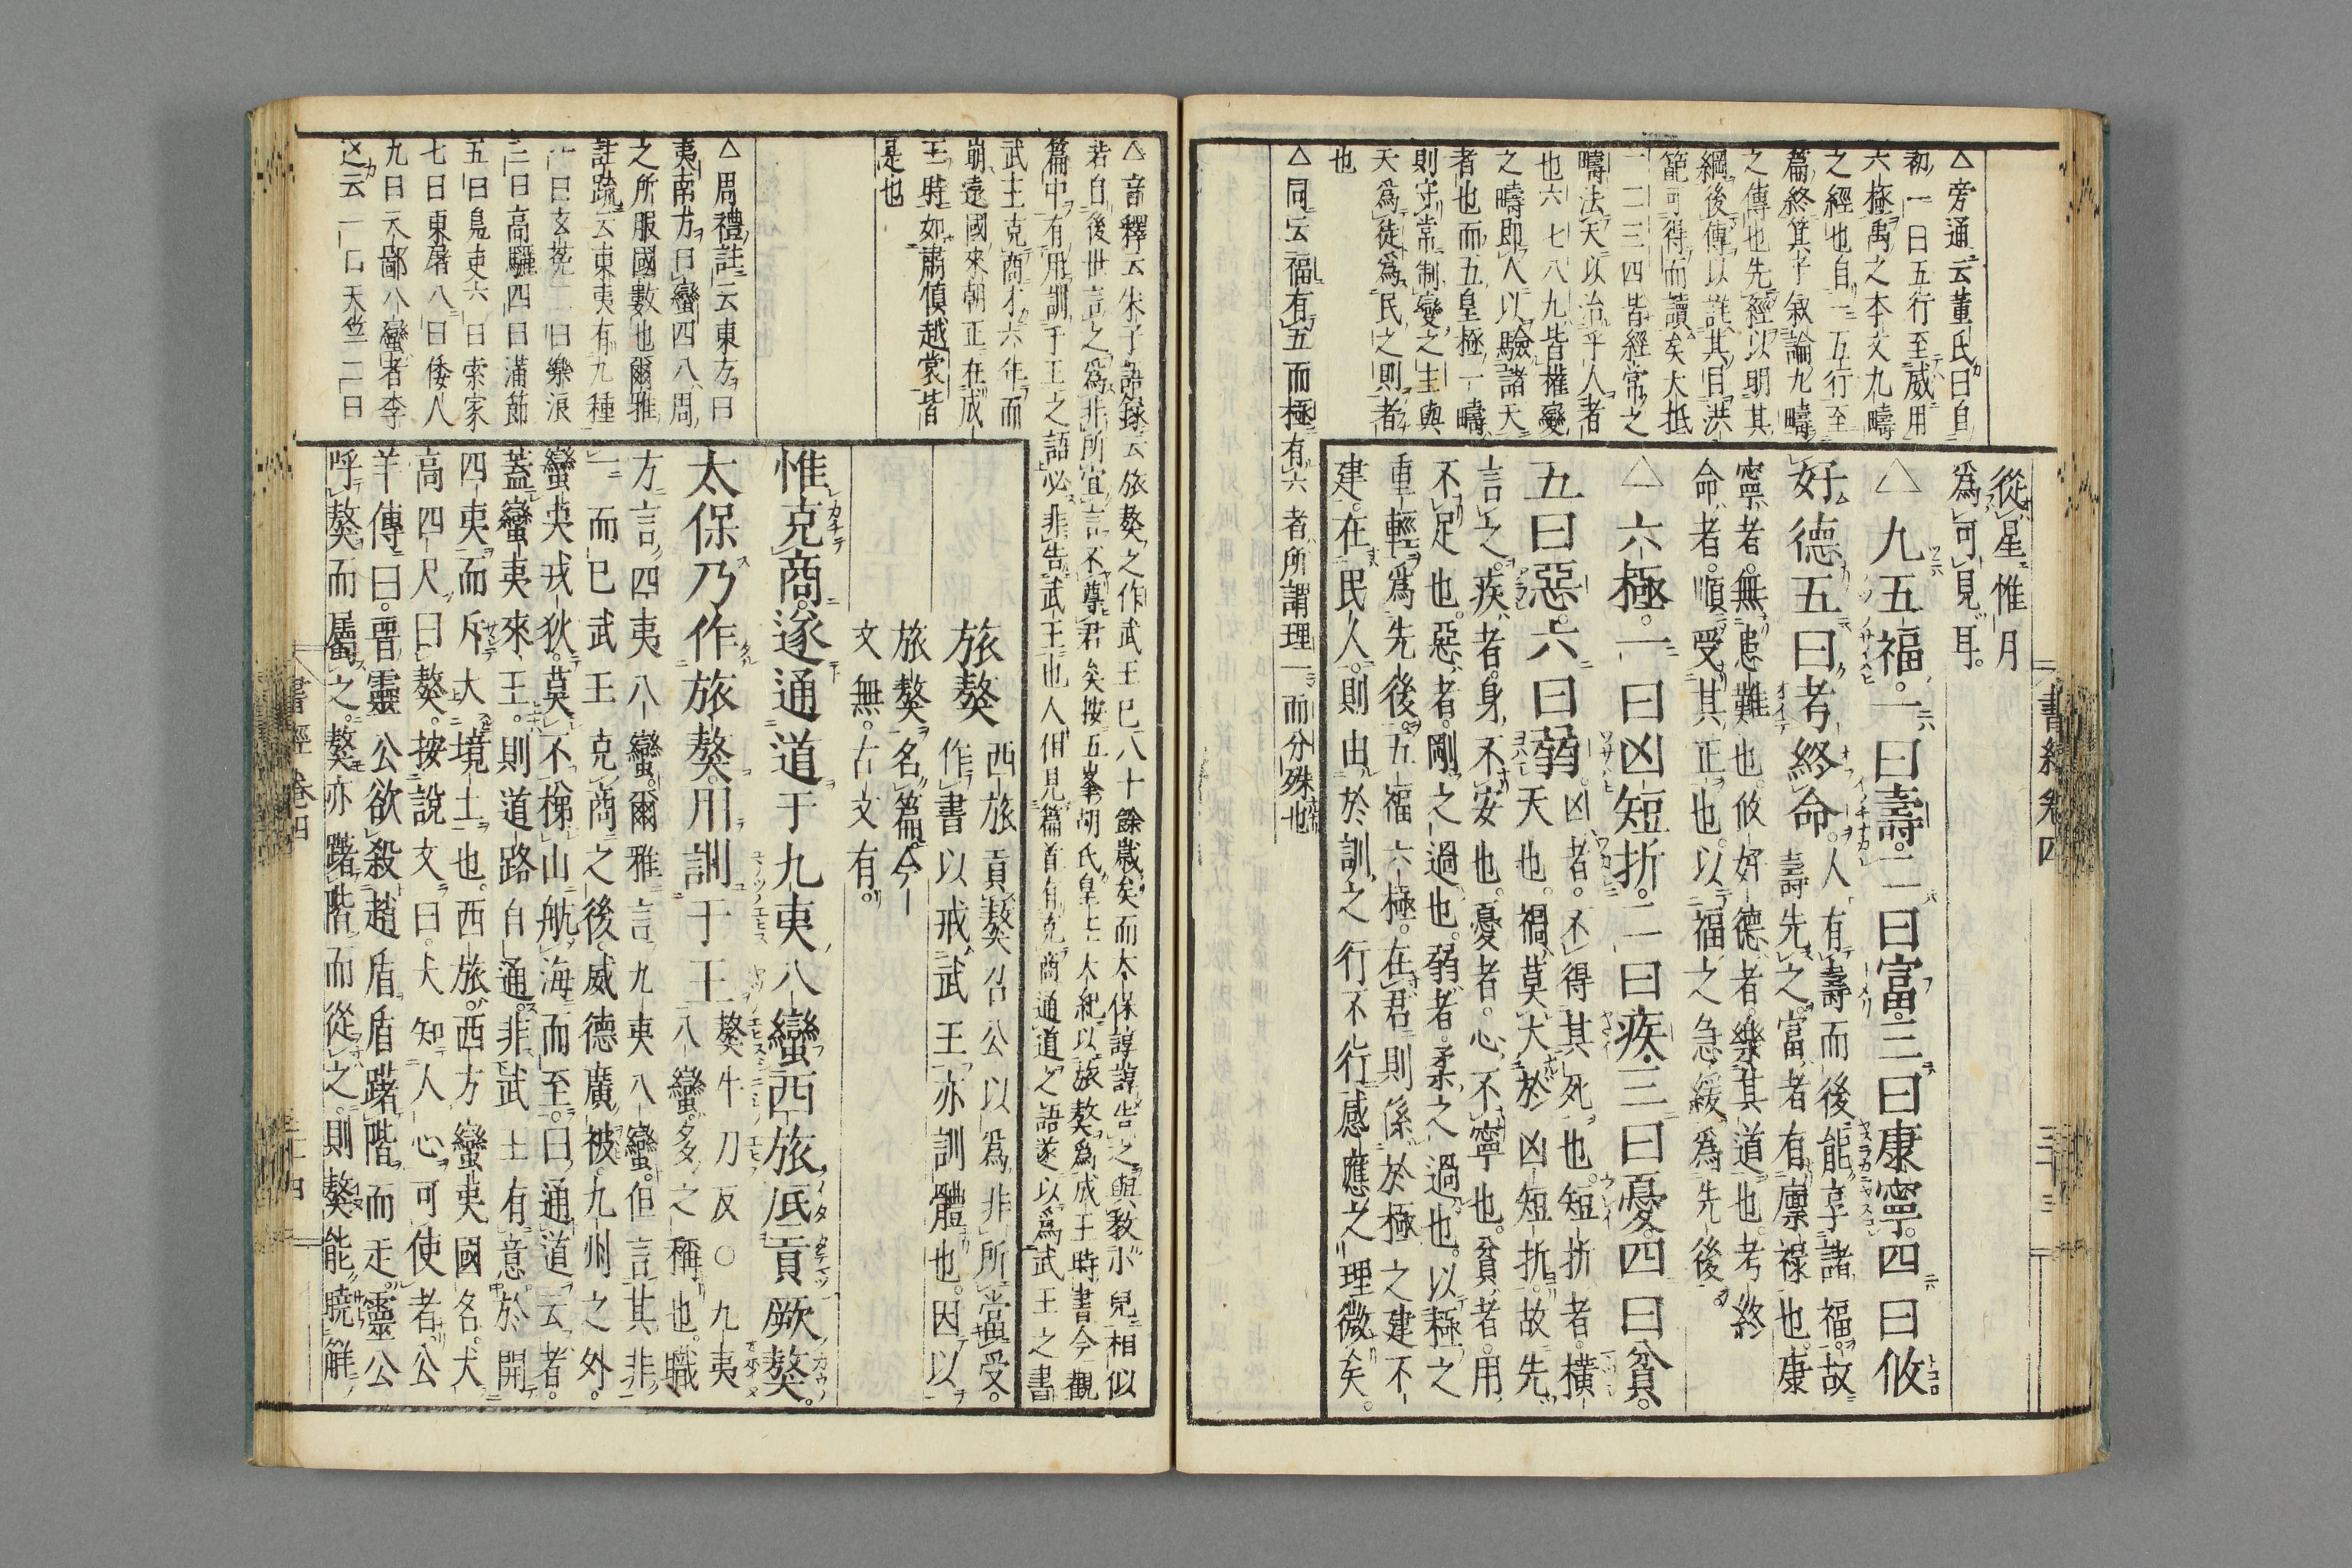 書經卷四
三十三
從星惟月
爲可見耳。
△九五福。一曰壽。二曰富。三曰康寧。四曰攸
好德五曰考終命。人有壽而後能享諸福。故
壽先之。富者有廩祿也。康
寧者。無患難也。攸好德者。樂其道也。考終
命者。順受其正也。以福之急緩爲先後
△六極。一曰凶短折。二曰疾。三曰憂。四曰貧。
五曰惡。六曰弱。凶者。不得其死也。短折者。橫
夭也。禍莫大於凶短折。故先
言之。疾者。身不安也。憂者。心不寧也。貧者。用
不足也。惡者。剛之過也。弱者。柔之過也。以極之
重輕爲先後。五福六極。在君則係於極之建不
建。在民人。則由於訓之行不行。感應之理微矣。
△旁通云董氏曰自
初一曰五行至威用
六極禹之本文九疇
之經也自一五行至
篇終箕子叙論九疇
之傳也先經以明其
綱後傳以詳其目洪
範可得而讀矣大抵
一二三四皆經常之
疇法天以治乎人者
也六七八九皆權變
之疇即人以驗諸天
者也而五皇極一疇
則守常制變之主與
天爲徒爲民之則者
也
△同云福有五而極有六者所謂理一而分殊也
△音釋云朱子語錄云旅獒之作武王已八十餘歲矣而太保諄諄告之與教小兒相似
若自後世言之爲非所宜言不尊君矣按五峯胡氏皇王大紀以旅獒爲成王時書今觀
篇中有用訓于王之語必非告武王也人但見篇首有克商通道之語遂以爲武王之書
武王克商才六年而
崩遠國來朝正在成
王時如肅愼越裳皆
是也
旅獒
西旅貢獒召公以爲非所當受。
作書以戒武王亦訓體也。因以
旅獒名篇。今
文無。古文有。
惟克商。遂通道于九夷八蠻西旅。厎貢厥獒。
太保乃作旅獒。用訓于王
獒牛刀反○九夷
八蠻。多之稱也。職
方言。四夷八蠻。爾雅言九夷八蠻。但言其非
一而已武王克商之後。威德廣被。九州之外。
蠻夷戎狄。莫不梯山航海而至。曰通道云者。
蓋蠻夷來王。則道路自通。非武王有意於開
四夷而斥大境土也。西旅。西方蠻夷國名。犬
高四尺曰獒。按說文曰。犬知人心可使者。公
羊傳曰。晉靈公欲殺趙盾盾躇階而走。靈公
呼獒而屬之。獒亦躇階而從之。則獒能曉解
△周禮註云東方曰
夷南方曰蠻四八周
之所服國數也爾雅
註疏云東夷有九種
一曰玄菟二曰樂浪
三曰高驪四曰滿飾
五曰鳧臾六曰索家
七曰東屠八曰倭人
九曰天鄙八蠻者李
巡云一曰天竺二曰
書經卷四
三十四